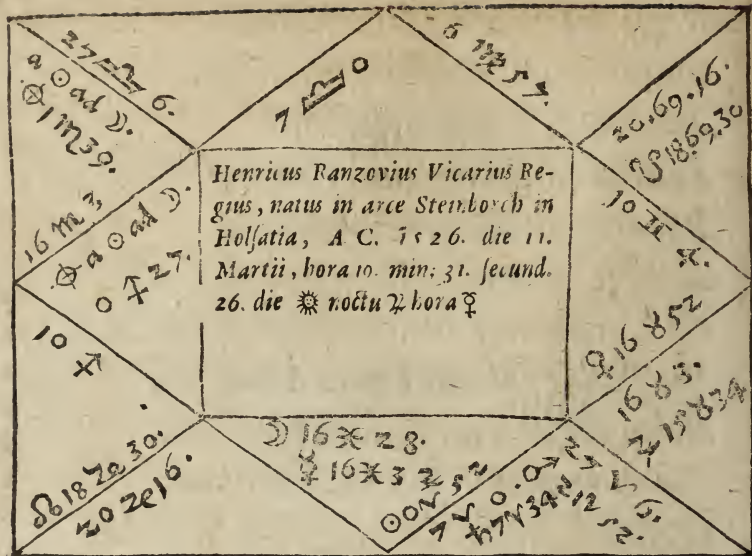 27 ♎ 6.
a ☉ ad ☽.
⊗ 1 ♏ 39.
7 ♎ 0
6 ♍ 57.
20. 69. 16.
☋ 18. 69. 30
Henricus Ranzovius Vicarius Re-
gius, natus in arce Steinborch in
Holsatia, A C. 1526. die 11.
Martii, hora 19. min: 31. secund.
26. die ☼ noctu ♃ hora ☿
16 ♏ 3
⊗ a ☉ ad ☽.
0 ♐ 27.
10 ♐
☊ 18 ♑ 30.
20 ♑ 16.
☽ 16 ♓ 28.
☿ 16 ♓ 3
☉ 0 ♈ 52
7 ♈ 0.
♄ 7 ♈ 34
27 ♈ 6.
10 ♊
♀ 16 ♉ 52
16 ♉ 3.
♃ 15 ♉ 34